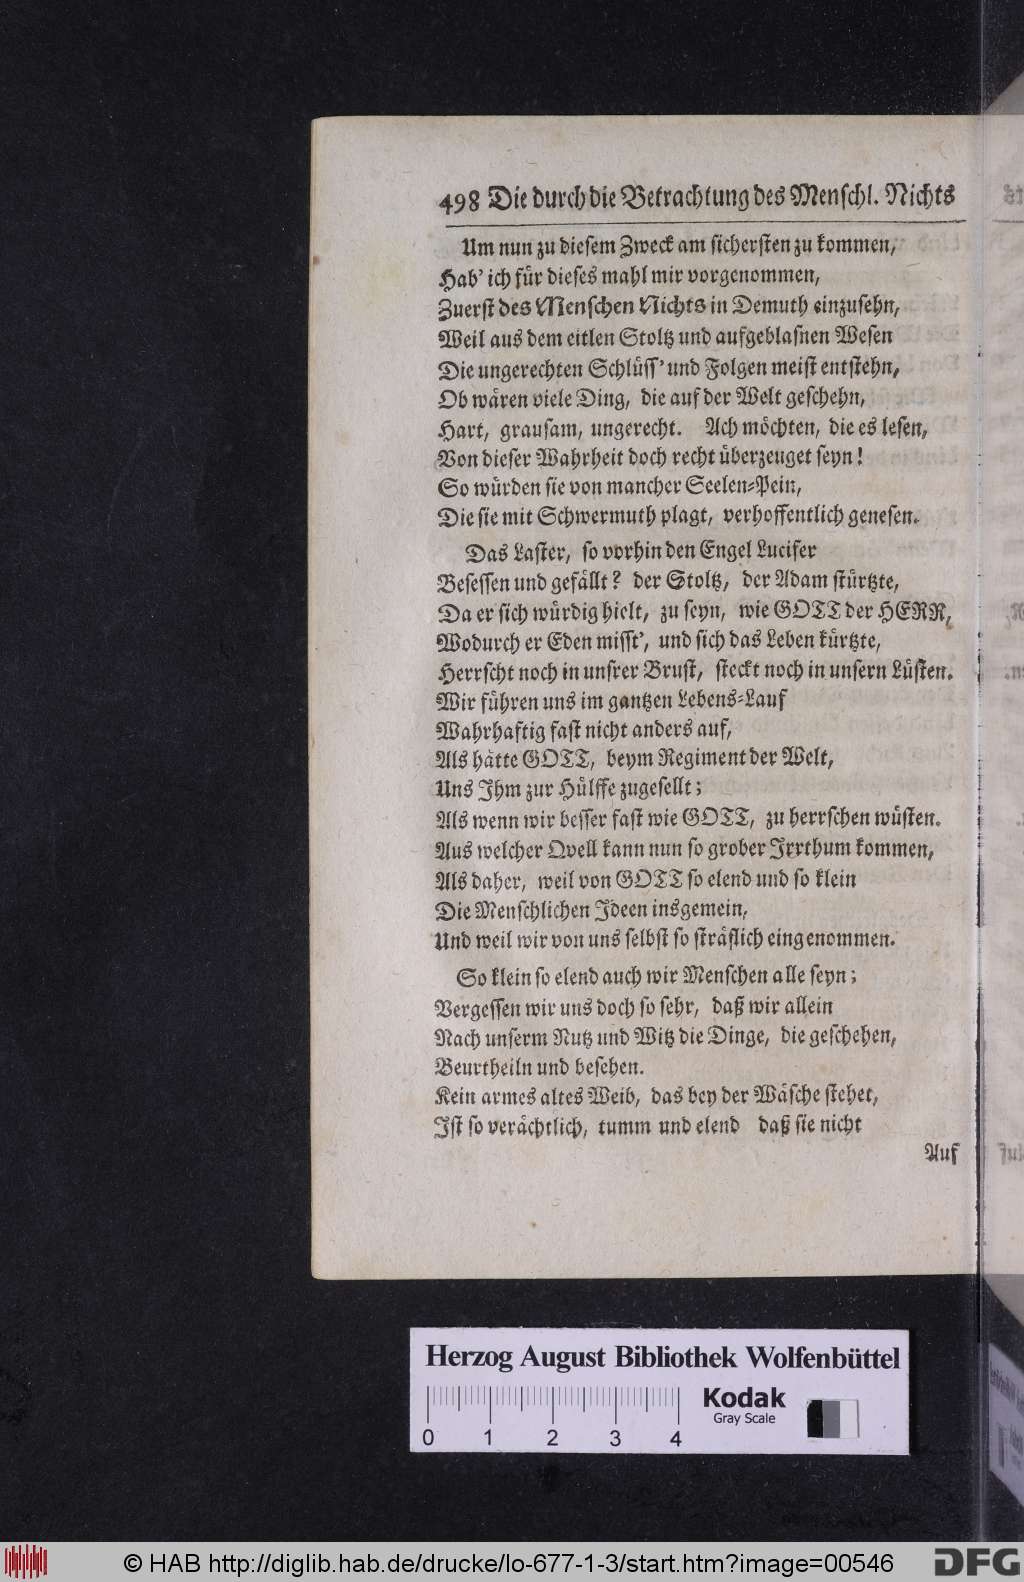 498 Die durch die Betrachtung des Menschl. Nichts
Um nun zu diesem Zweck am sichersten zu kommen,
Hab' ich für dieses mahl mir vorgenommen,
Zuerst des Menschen Nichts in Demuth einzusehn,
Weil aus dem eitlen Stoltz und aufgeblasnen Wesen
Die ungerechten Schlüss' und Folgen meist entstehn,
Ob wären viele Ding, die auf der Welt geschehn,
Hart, grausam, ungerecht. Ach möchten, die es lesen,
Von dieser Wahrheit doch recht überzeuget seyn!
So würden sie von mancher Seelen-Pein,
Die sie mit Schwermuth plagt, verhoffentlich genesen.
Das Laster, so vorhin den Engel Lucifer
Besessen und gefällt? der Stoltz, der Adam stürtzte,
Da er sich würdig hielt, zu seyn, wie GOTT der HERR,
Wodurch er Eden misst', und sich das Leben kürtzte,
Herrscht noch in unsrer Brust, steckt noch in unsern Lüsten.
Wir führen uns im gantzen Lebens-Lauf
Wahrhaftig fast nicht anders auf,
Als hätte GOTT, beym Regiment der Welt,
Uns Ihm zur Hülffe zugesellt;
Als wenn wir besser fast wie GOTT, zu herrschen wüsten.
Aus welcher Qvell kann nun so grober Irrthum kommen,
Als daher, weil von GOTT so elend und so klein
Die Menschlichen Ideen insgemein,
Und weil wir von uns selbst so sträflich eingenommen.
So klein so elend auch wir Menschen alle seyn;
Vergessen wir uns doch so sehr, daß wir allein
Nach unserm Nutz und Witz die Dinge, die geschehen,
Beurtheiln und besehen.
Kein armes altes Weib, das bey der Wäsche stehet,
Ist so verächtlich, tumm und elend daß sie nicht
Auf
Herzog August Bibliothek Wolfenbüttel
Kodak
Gray Scale
0 1 2 3 4
© HAB http://diglib.hab.de/drucke/lo-677-1-3/start.htm?image=00546
DFG